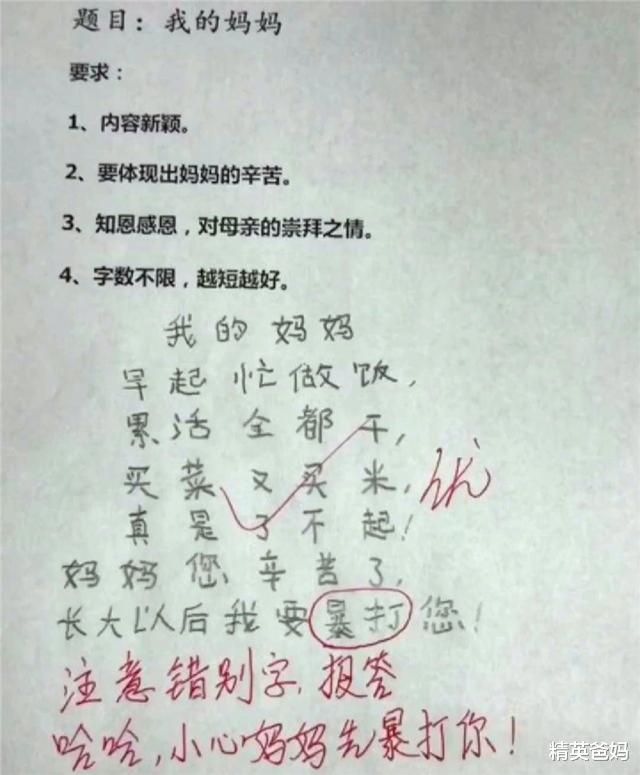 题目：我的妈妈
要求：
1、内容新颖。
2、要体现出妈妈的辛苦。
3、知恩感恩，对母亲的崇拜之情。
4、字数不限，越短越好。
我的妈妈
早起忙做饭，
累活全都干，
买菜又买米，
优
真是了不起！
妈妈您辛苦了，
长大以后我要暴打您！
注意错别字，报答
哈哈，小心妈妈先暴打你！
精英爸妈